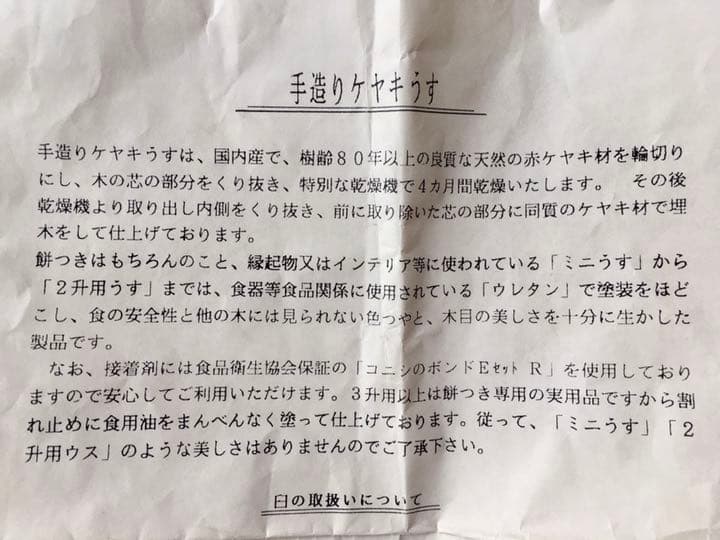 手造りケヤキうす
手造りケヤキうすは、国内産で、樹齢80年以上の良質な天然の赤ケヤキ材を輪切り
にし、木の芯の部分をくり抜き、特別な乾燥機で4カ月間乾燥いたします。　その後
乾燥機より取り出し内側をくり抜き、前に取り除いた芯の部分に同質のケヤキ材で埋
木をして仕上げております。
餅つきはもちろんのこと、縁起物又はインテリア等に使われている「ミニうす」から
「2升用うす」までは、食器等食品関係に使用されている「ウレタン」で塗装をほど
こし、食の安全性と他の木には見られない色つやと、木目の美しさを十分に生かした
製品です。
　なお、接着剤には食品衛生協会保証の「コニシのボンドEセット R」を使用しており
ますので安心してご利用いただけます。3升用以上は餅つき専用の実用品ですから割
れ止めに食用油をまんべんなく塗って仕上げております。従って、「ミニうす」「2
升用ウス」のような美しさはありませんのでご了承下さい。
臼の取扱いについて